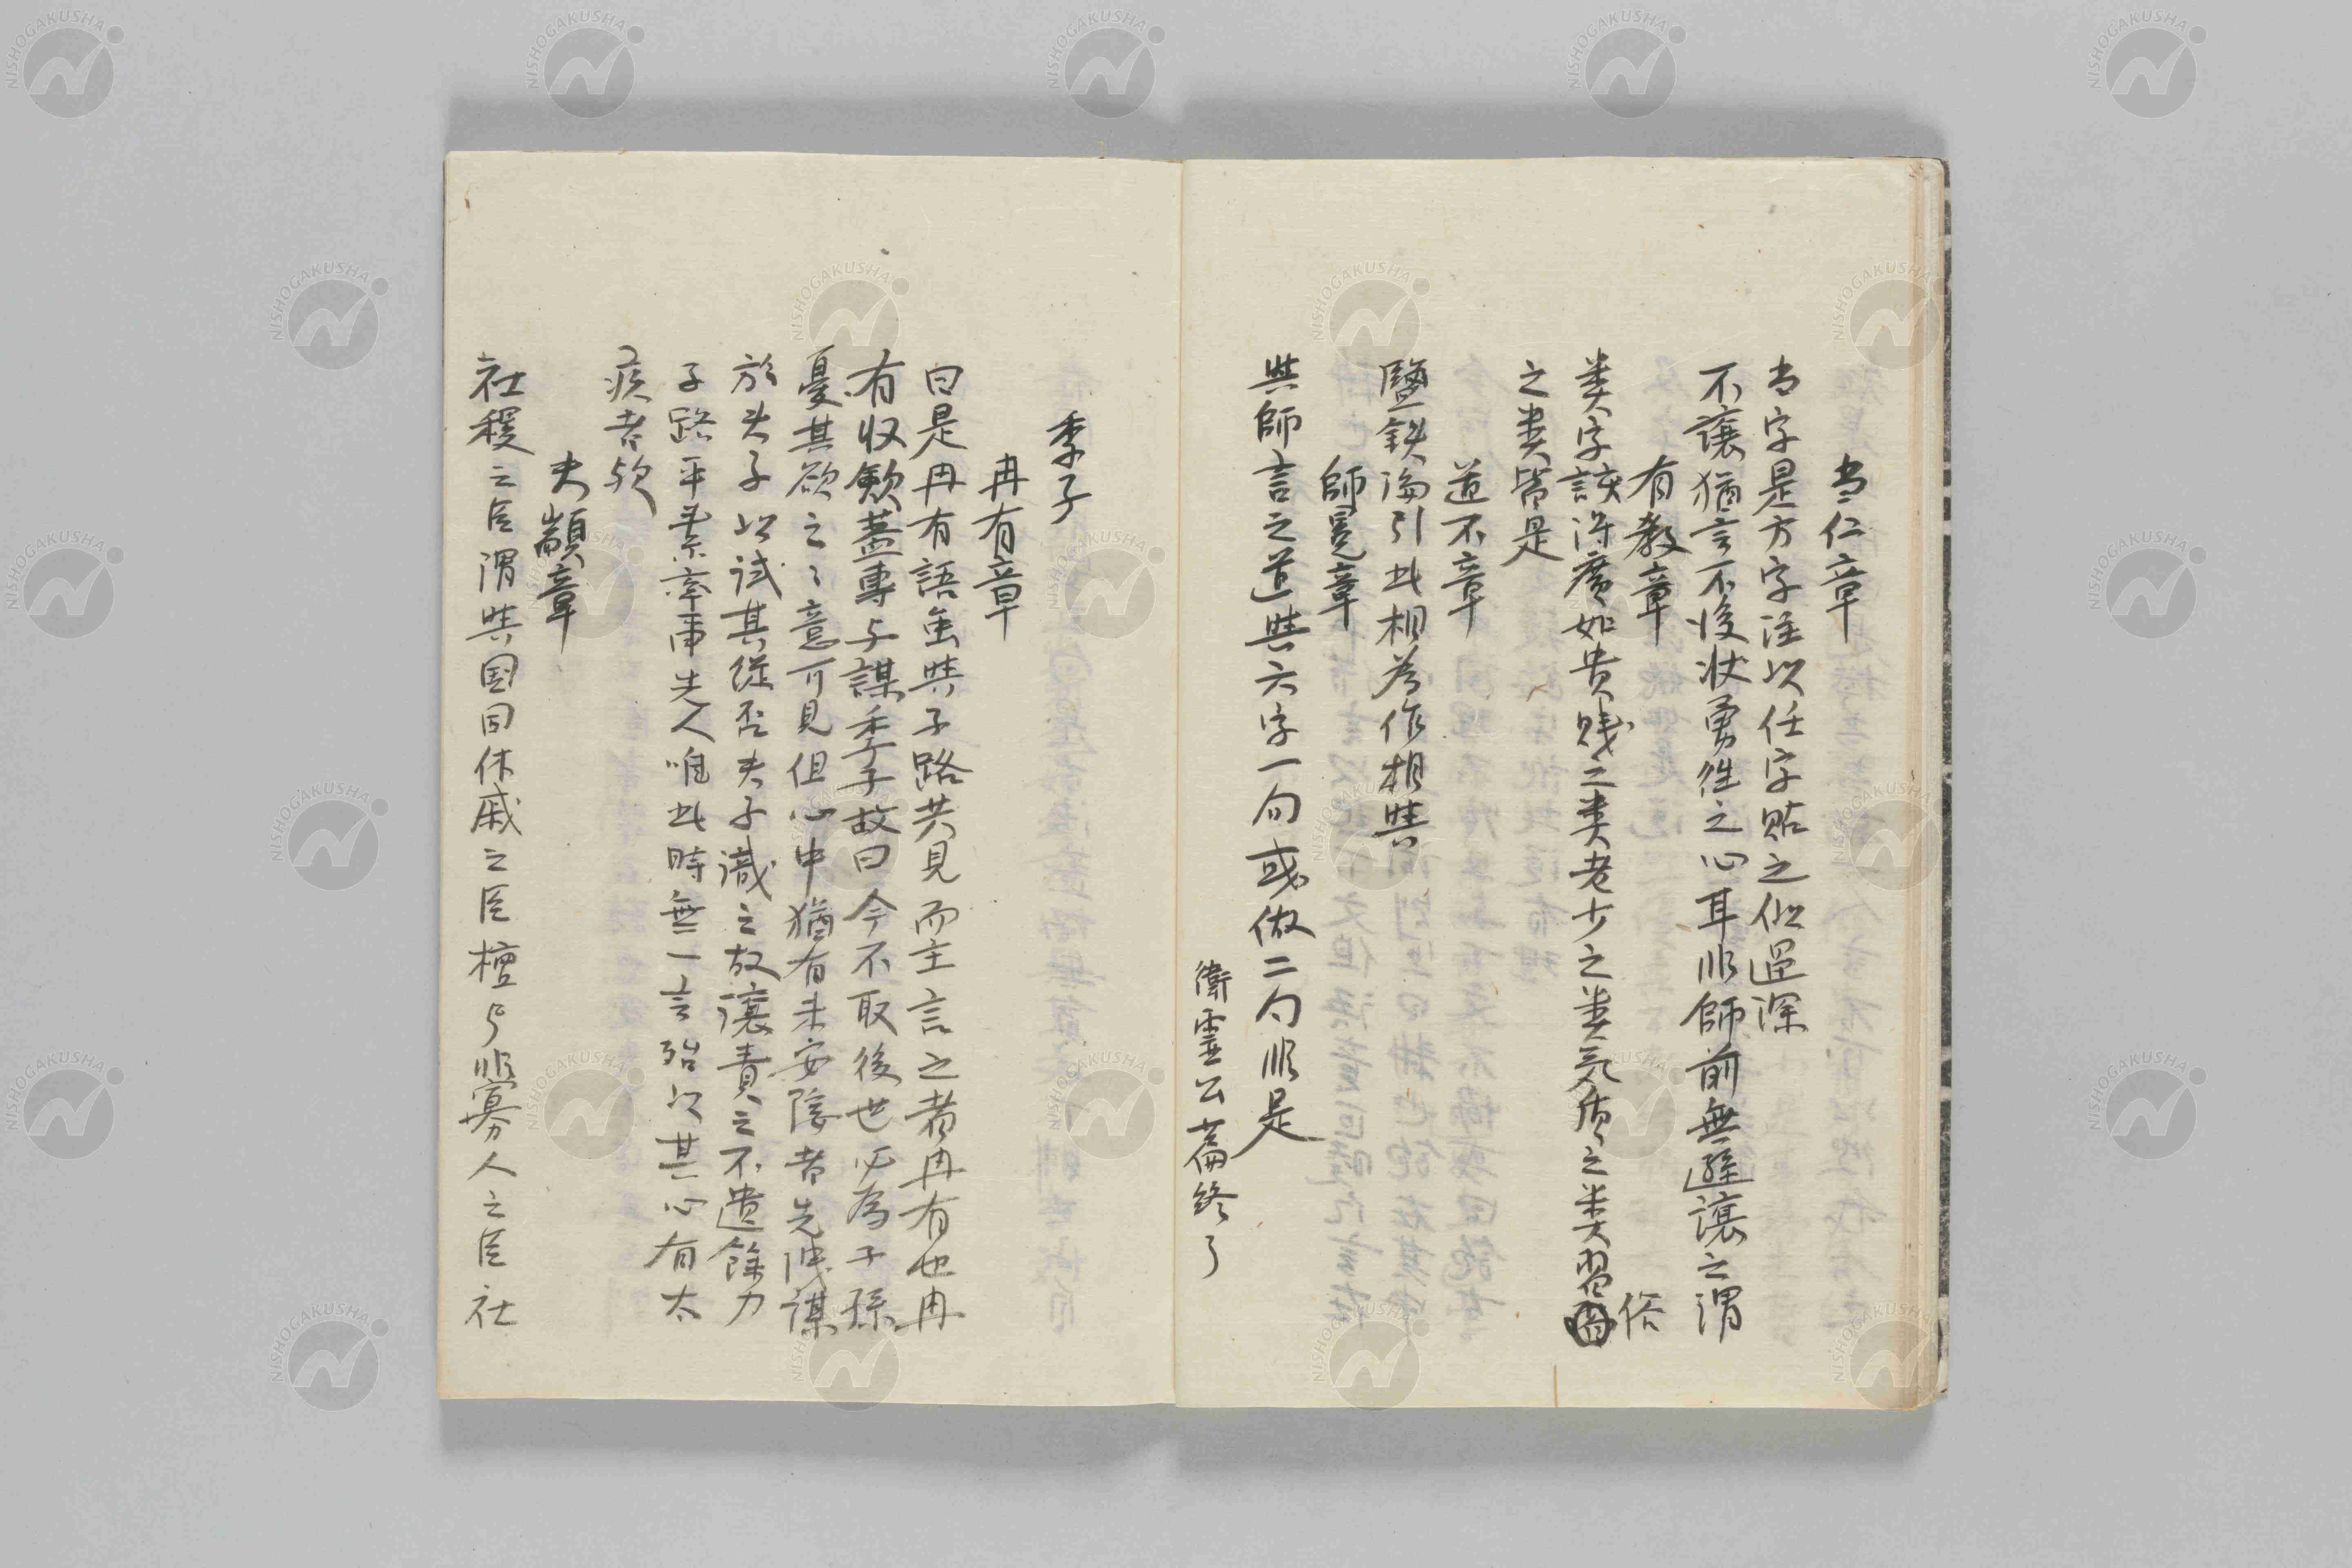 当仁章
当字是方字注以任字貼之似過深
不讓猶言不後状勇徃之心耳非師前無遜讓之謂
有教章
类字該得廣如貴賤之类老少之类気质之类習俗
之类皆是
道不章
鹽鉄論引此相為作相與
師冕章
與師言之道與六字一句或做二句非是
衛霊公篇終了
季子
冉有章
曰是冉有語虽與子路共見而主言之者冉有也冉
有収斂蓋專与謀季子故曰今不取後世必為子孫
憂其欲之之意可見但心中猶有未安隱者先洩謀
於夫子以試其從否夫子識之故讓責之不遺餘力
子路平素率事先人唯此時無一言殆以其心有太
疾者欤
夫顓章
社稷之臣謂與国同休戚之臣檀弓非寡人之臣社
NISHOGAKUSHA